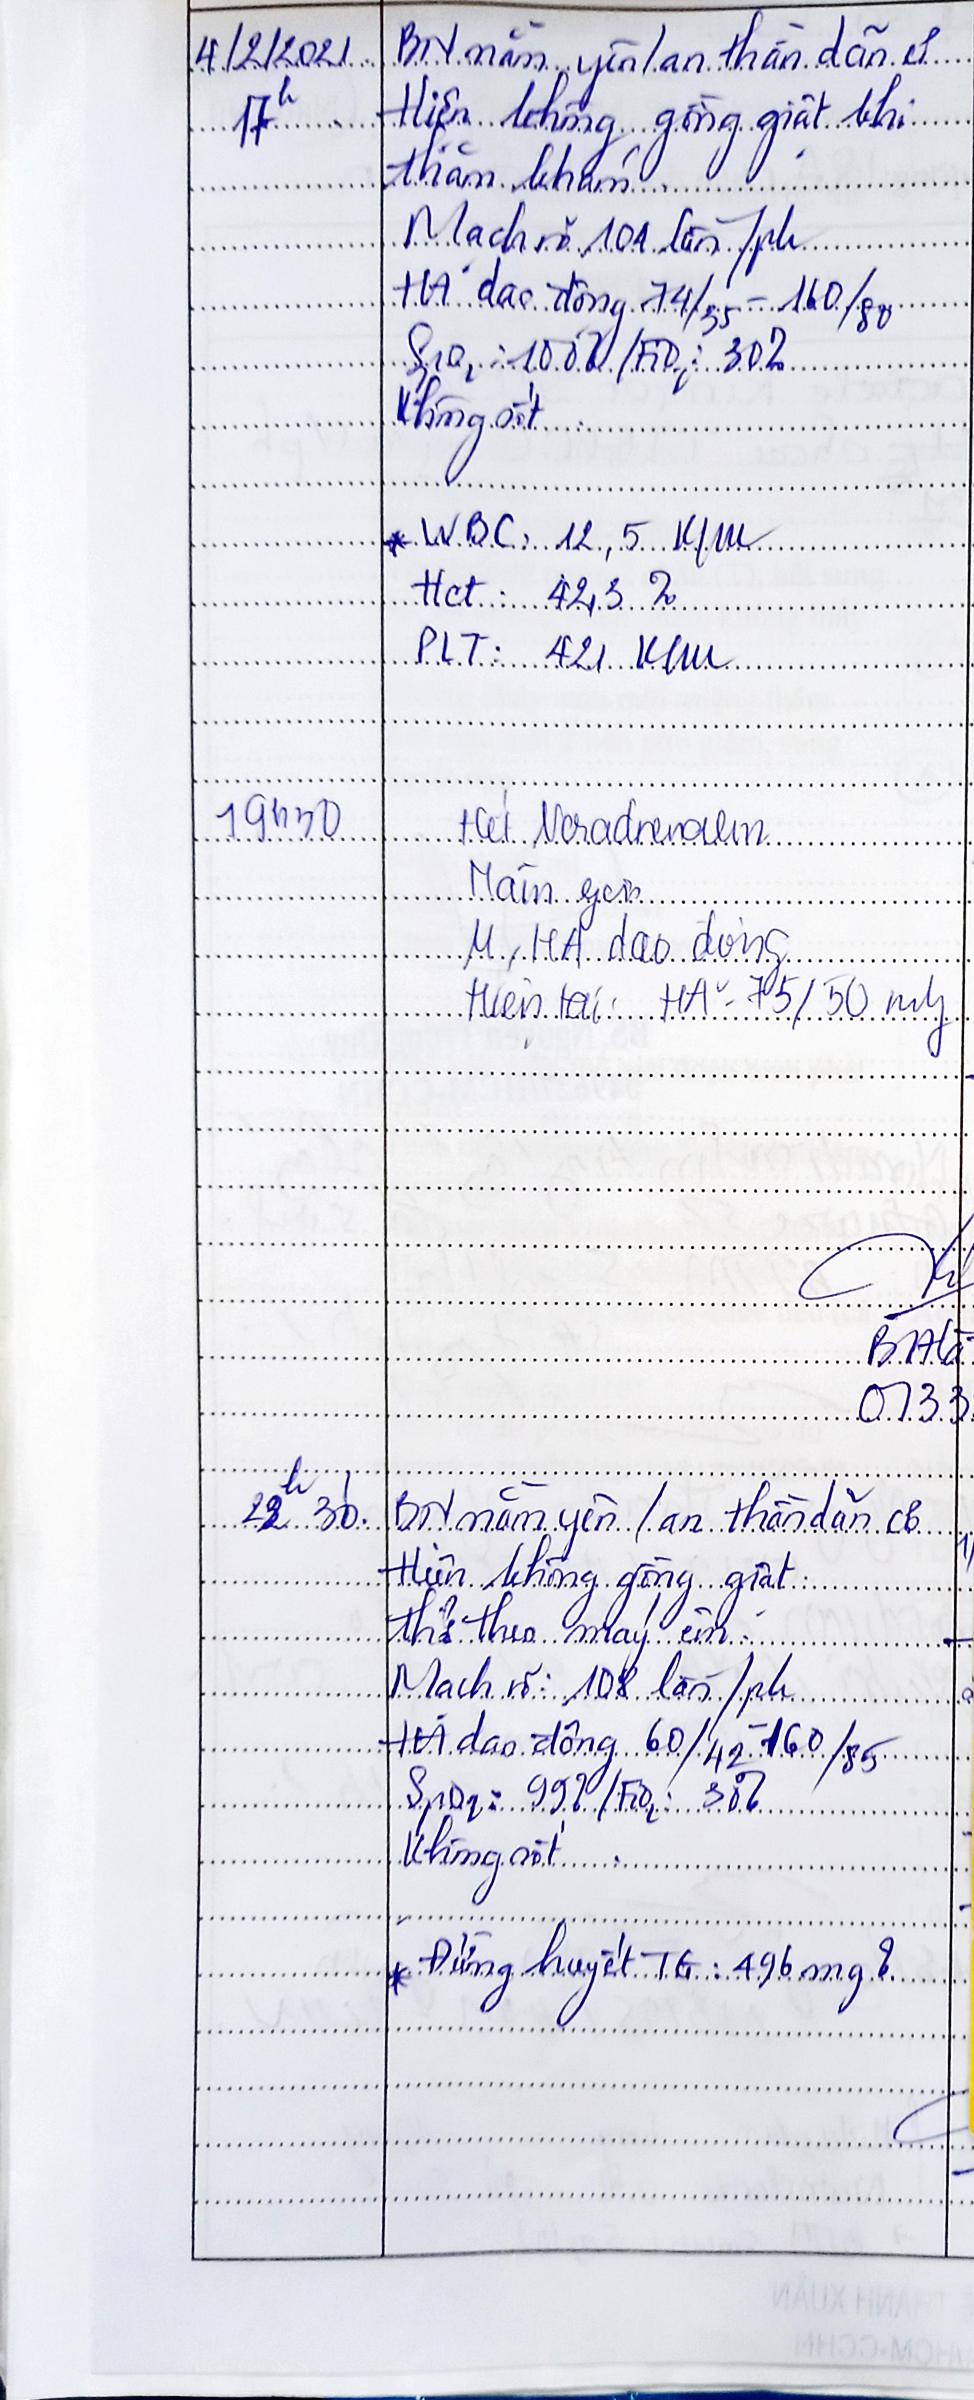 4/2/2021 BN nằm yên/an thần dãn cơ
17h Hiện không gồng giật khi
thăm khám
Mạch rõ 101 lần/ph
HA dao động 74/35 - 160/80
SpO2: 100% / FiO2: 30%
Không sốt
* WBC: 12,5 K/
Hct: 42,3 %
PLT: 421 K/
19h30 Hết Noradrenalin
M, HA dao động
Hiện tại: HA: 75/50
BS
0733
22h30. BN nằm yên / an thần dãn cơ
Hiện không gồng giật.
thở theo máy êm.
Mạch rõ: 108 lần/ph
HA dao động 60/42 - 160/85
SpO2: 99% / FiO2: 30%
Không sốt.
* Đường huyết TG: 496 mg%